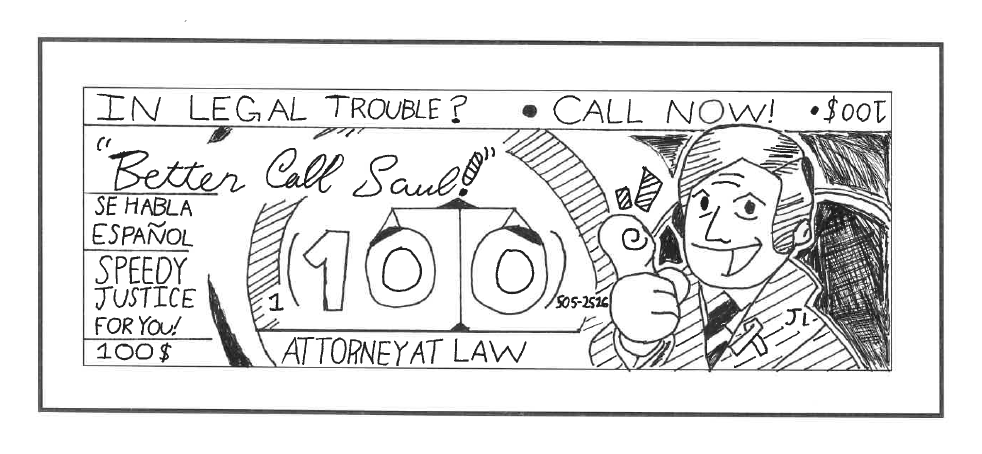 IN LEGAL TROUBLE? • CALL NOW! •$001
"Better Call Saul!"
SE HABLA
ESPAÑOL
SPEEDY
JUSTICE
FOR YOU!
100$
1 (100) 505-2526
ATTORNEY AT LAW
JL